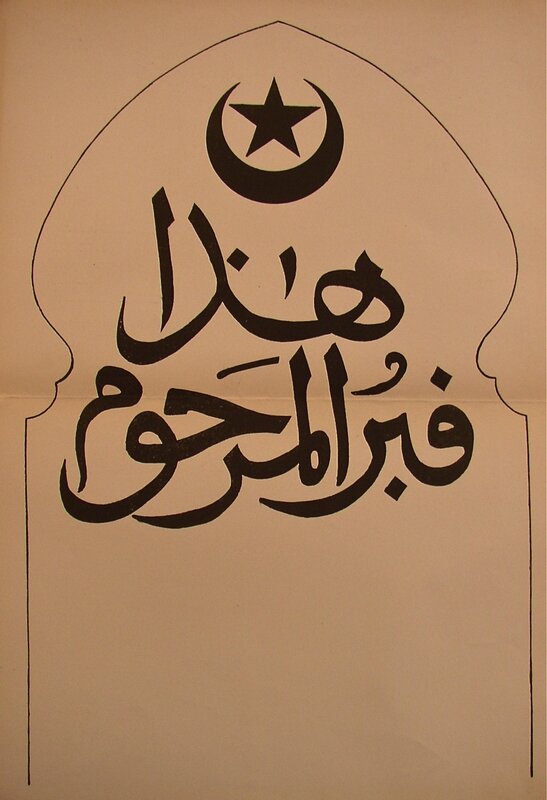 هٰذا
قبُر المرحوم